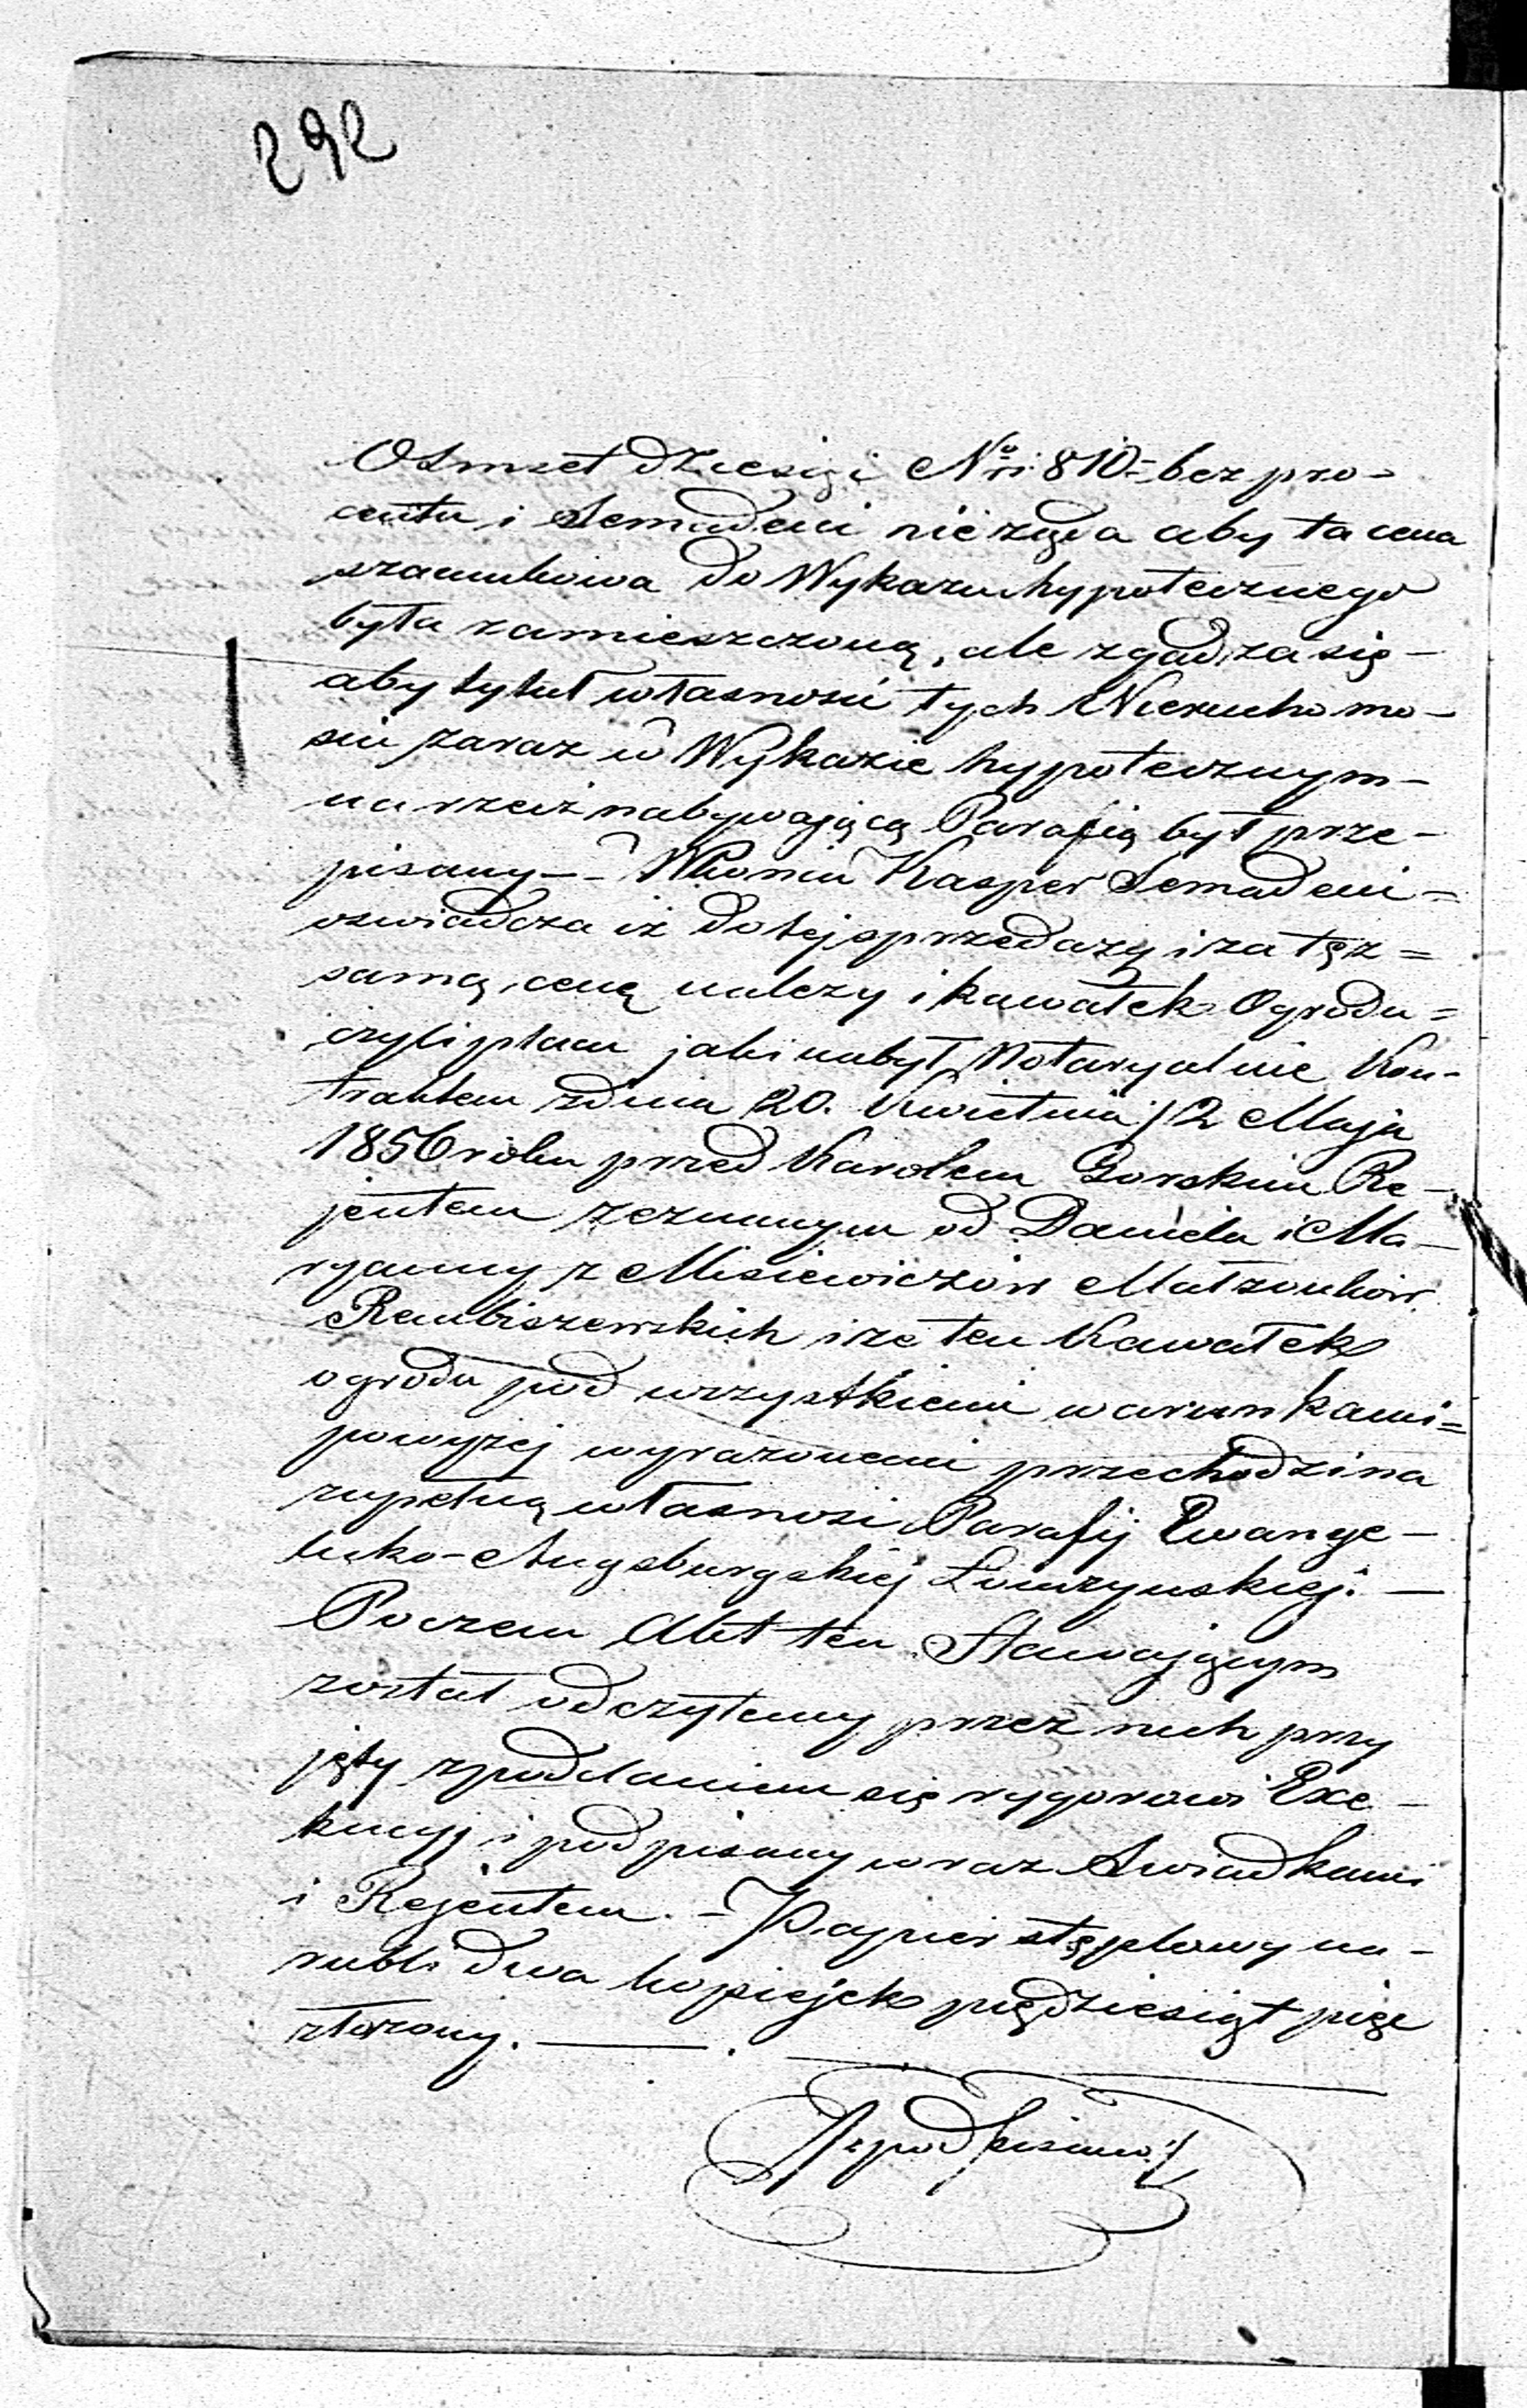 292
Osmset dziesięć Nrii 810 = bez pro=
centu i Semadeni nie żąda aby ta cena
szacunkowa do Wykazu hypotecznego
była zamieszczoną, ale zgadza się –
aby tytuł własności tych Nieruchomo–
ści zaraz w Wykazie hypotecznym –
na rzecz nabywającą Parafią był prze–
pisany – – Wkońcu Kasper Semadeni =
oświadcza iż do tej sprzedaży i za tęż =
samą cenę należy i kawałek Ogrodu =
czyli placu jaki nabył Notaryalnie Kon–
traktem z dnia 20. Kwietnia / 2 Maja
1856 roku przed Karolem Gorskim Re–
jentem zeznanym od Daniela i Ma–
ryanny z Misiewiczów Małżonków
Rembiszewskich i że ten Kawałek
ogrodu pod wszystkiemi warunkami =
powyżej wyrażonemi przechodzi na
zupełną własność Parafij Ewange–
licko-Augsburgskiej Łomżyńskiej. —
Poczem Akt ten Stawającym
został odczytany przez nich przy
jęty z poddaniem się rygorowi Exe–
kucyj i podpisany wraz Świadkami
i Rejentem. – Papier stęplowy na –
rubli dwa kopiejek pięćdziesiąt pięć
złożony. — .